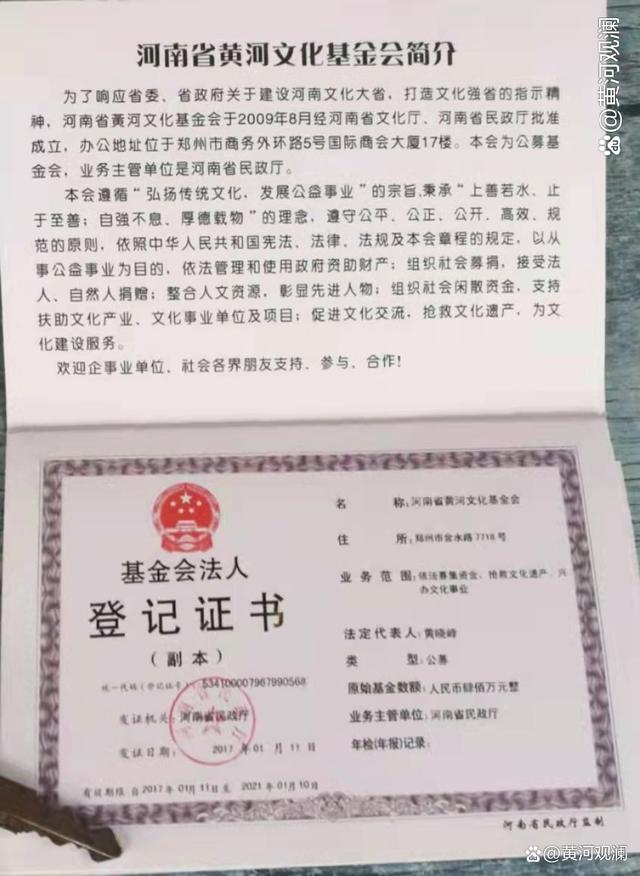 河南省黄河文化基金会简介
为了响应省委、省政府关于建设河南文化大省，打造文化强省的指示精
神，河南省黄河文化基金会于2009年8月经河南省文化厅、河南省民政厅批准
成立，办公地址位于郑州市商务外环路5号国际商会大厦17楼。本会为公募基
金会，业务主管单位是河南省民政厅。
本会遵循“弘扬传统文化，发展公益事业”的宗旨,秉承“上善若水、止
于至善；自强不息、厚德载物”的理念，遵守公平、公正、公开、高效、规
范的原则，依照中华人民共和国宪法、法律、法规及本会章程的规定，以从
事公益事业为目的，依法管理和使用政府资助财产；组织社会募捐，接受法
人、自然人捐赠；整合人文资源，彰显先进人物；组织社会闲散资金，支持
扶助文化产业、文化事业单位及项目；促进文化交流，抢救文化遗产，为文
化建设服务。
欢迎企事业单位、社会各界朋友支持、参与、合作！
基金会法人
登记证书
（副本）
统一代码（登记证号）：534100007967990568
发证机关：河南省民政厅
发证日期：2017年01月11日
有效期限 自2017年01月11日至 2021年01月10日
名称：河南省黄河文化基金会
住所：郑州市金水路7718号
业务范围：依法募集资金、抢救文化遗产、兴
办文化事业
法定代表人：黄晓峰
类型：公募
原始基金数额：人民币肆佰万元整
业务主管单位：河南省民政厅
年检(年报)记录：
河南省民政厅监制
@黄河观澜
@黄河观澜